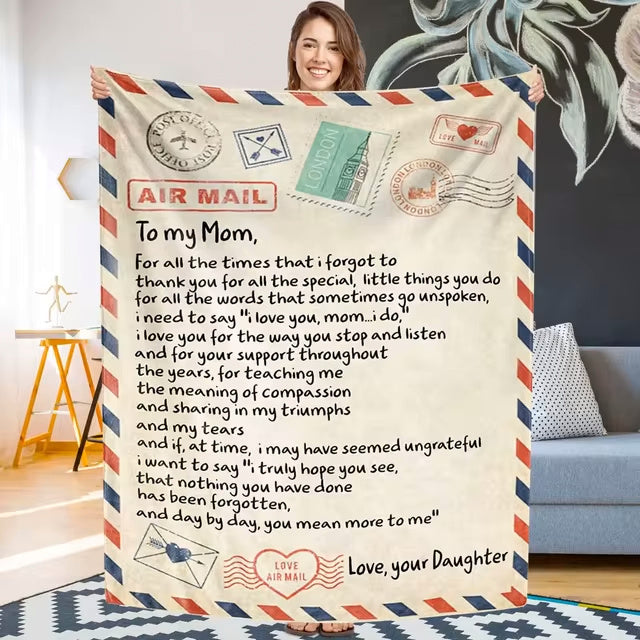 POST OFFICE
POST OFFICE
LONDON
LOVE MAIL
LONDON LONDON
LONDON
AIR MAIL
To my Mom,
For all the times that i forgot to
thank you for all the special, little things you do
for all the words that sometimes go unspoken,
i need to say "i love you, mom...i do,"
i love you for the way you stop and listen
and for your support throughout
the years, for teaching me
the meaning of compassion
and sharing in my triumphs
and my tears
and if, at time, i may have seemed ungrateful
i want to say "i truly hope you see,
that nothing you have done
has been forgotten,
and day by day, you mean more to me"
LOVE
AIR MAIL
Love, your Daughter